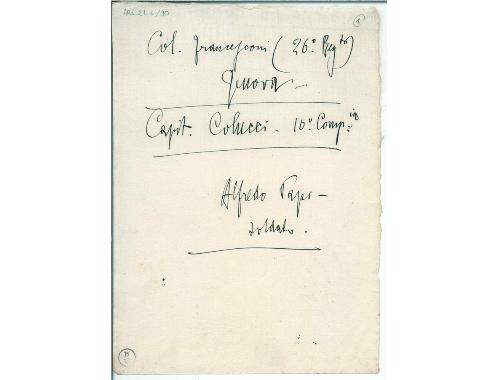 Col. Francesconi (26º Regto)
Genova -
Capit. Colucci - 10ª Compia
Alfredo Papi -
soldato.